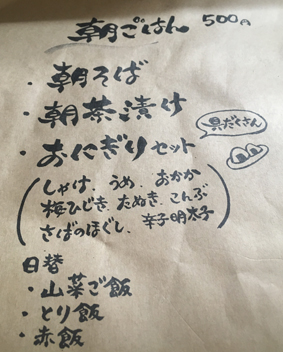 朝ごはん 500円
・朝そば
・朝茶漬け
・おにぎりセット
具だくさん
(しゃけ、うめ、おかか
梅ひじき、たぬき、こんぶ
さばのほぐし、辛子明太子)
日替
・山菜ご飯
・とり飯
・赤飯